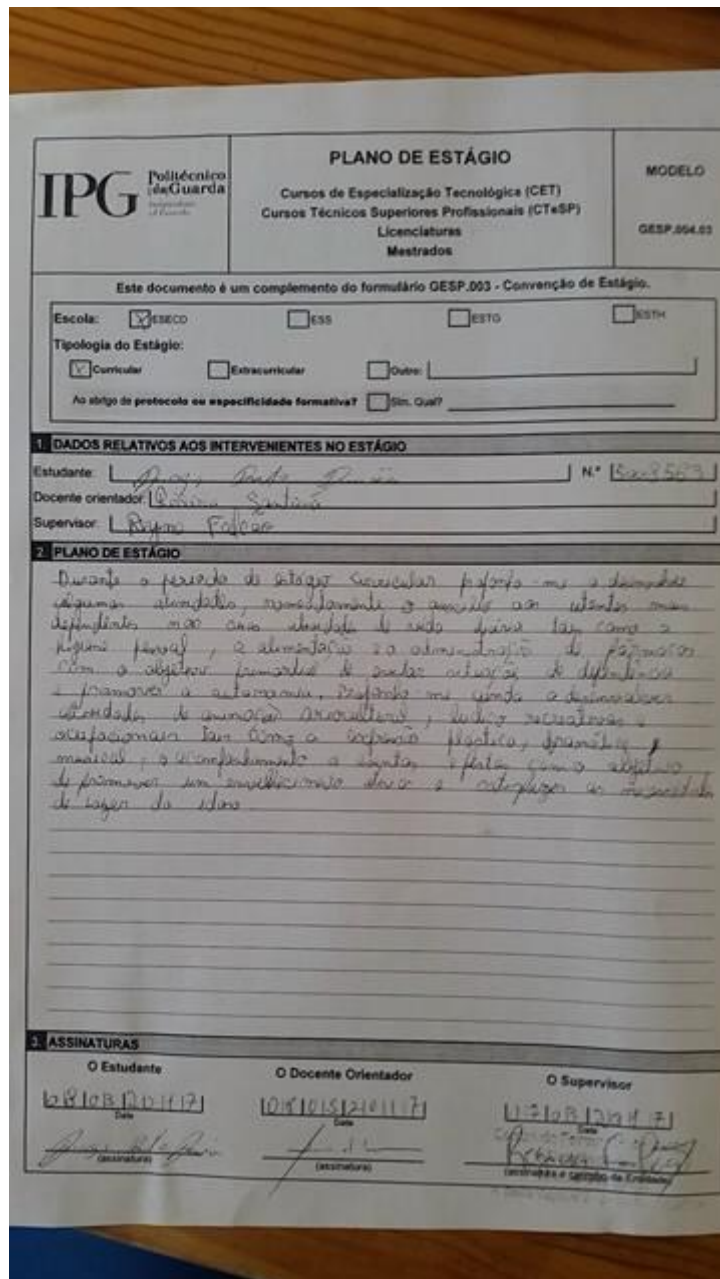 IPG Politécnico da Guarda
PLANO DE ESTÁGIO
Cursos de Especialização Tecnológica (CET)
Cursos Técnicos Superiores Profissionais (CTeSP)
Licenciaturas
Mestrados
MODELO
GESP.004.03
Este documento é um complemento do formulário GESP.003 - Convenção de Estágio.
Escola: X ESECD ESS ESTG ESTH
Tipologia do Estágio:
X Curricular Extracurricular Outro:
Ao abrigo de protocolo ou especificidade formativa? Sim. Qual?
1. DADOS RELATIVOS AOS INTERVENIENTES NO ESTÁGIO
Estudante: N.º
Docente orientador: Santana
Supervisor:
2. PLANO DE ESTÁGIO
Durante o periodo de estágio curricular proponho-me a desenvolver
algumas atividades, nomeadamente o auxilio aos utentes mais
dependentes nas suas atividade de vida diária tais como a
higiene pessoal, a alimentação e a administração de
com o objetivo primordial de evitar situações de dependência
e promover a autonomia. Proponho me ainda a desenvolver
atividades de animação sociocultural, ludico recreativas e
ocupacionais tais como a expressão plastica, dramática,
musical, o acompanhamento a eventos e festas com o objetivo
de promover um envelhecimento ativo e satisfazer as necessidades
de lazer do idoso
3. ASSINATURAS
O Estudante O Docente Orientador O Supervisor
Data Data Data
(assinatura) (assinatura) (assinatura e carimbo da Entidade)